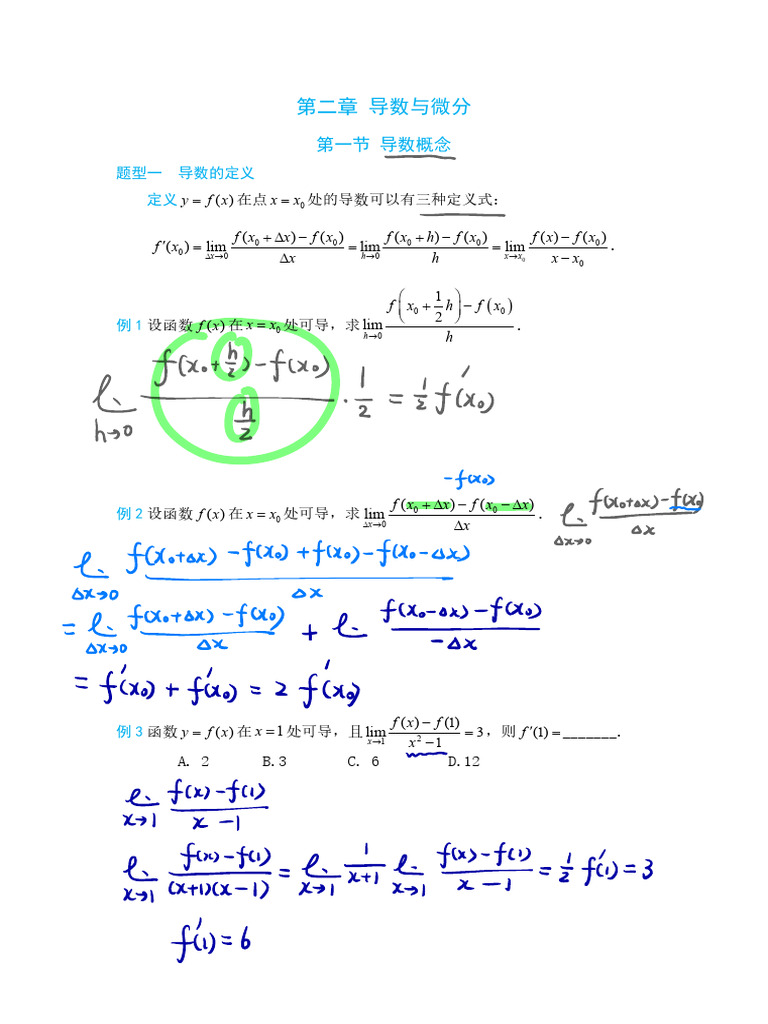 第二章 导数与微分
第一节 导数概念
题型一 导数的定义
定义 y = f(x) 在点 x = x₀ 处的导数可以有三种定义式：
f′(x₀) = lim_{Δx→0} (f(x₀ + Δx) − f(x₀))/Δx = lim_{h→0} (f(x₀ + h) − f(x₀))/h = lim_{x→x₀} (f(x) − f(x₀))/(x − x₀) .
例 1 设函数 f(x) 在 x = x₀ 处可导，求 lim_{h→0} (f(x₀ + (1/2)h) − f(x₀))/h .
l._{h→0} (f(x₀ + h/2) − f(x₀))/(h/2) · 1/2 = 1/2 f′(x₀)
−f(x₀)
例 2 设函数 f(x) 在 x = x₀ 处可导，求 lim_{Δx→0} (f(x₀ + Δx) − f(x₀ − Δx))/Δx . l._{Δx→0} (f(x₀+Δx) − f(x₀))/Δx
l._{Δx→0} (f(x₀+Δx) − f(x₀) + f(x₀) − f(x₀−Δx))/Δx
= l._{Δx→0} (f(x₀+Δx) − f(x₀))/Δx + l. (f(x₀−Δx) − f(x₀))/(−Δx)
= f′(x₀) + f′(x₀) = 2 f′(x₀)
例 3 函数 y = f(x) 在 x = 1 处可导，且 lim_{x→1} (f(x) − f(1))/(x² − 1) = 3，则 f′(1) = _______.
A. 2 B.3 C. 6 D.12
l._{x→1} (f(x) − f(1))/(x − 1)
l._{x→1} (f(x) − f(1))/((x+1)(x−1)) = l._{x→1} 1/(x+1) l._{x→1} (f(x) − f(1))/(x − 1) = 1/2 f′(1) = 3
f′(1) = 6